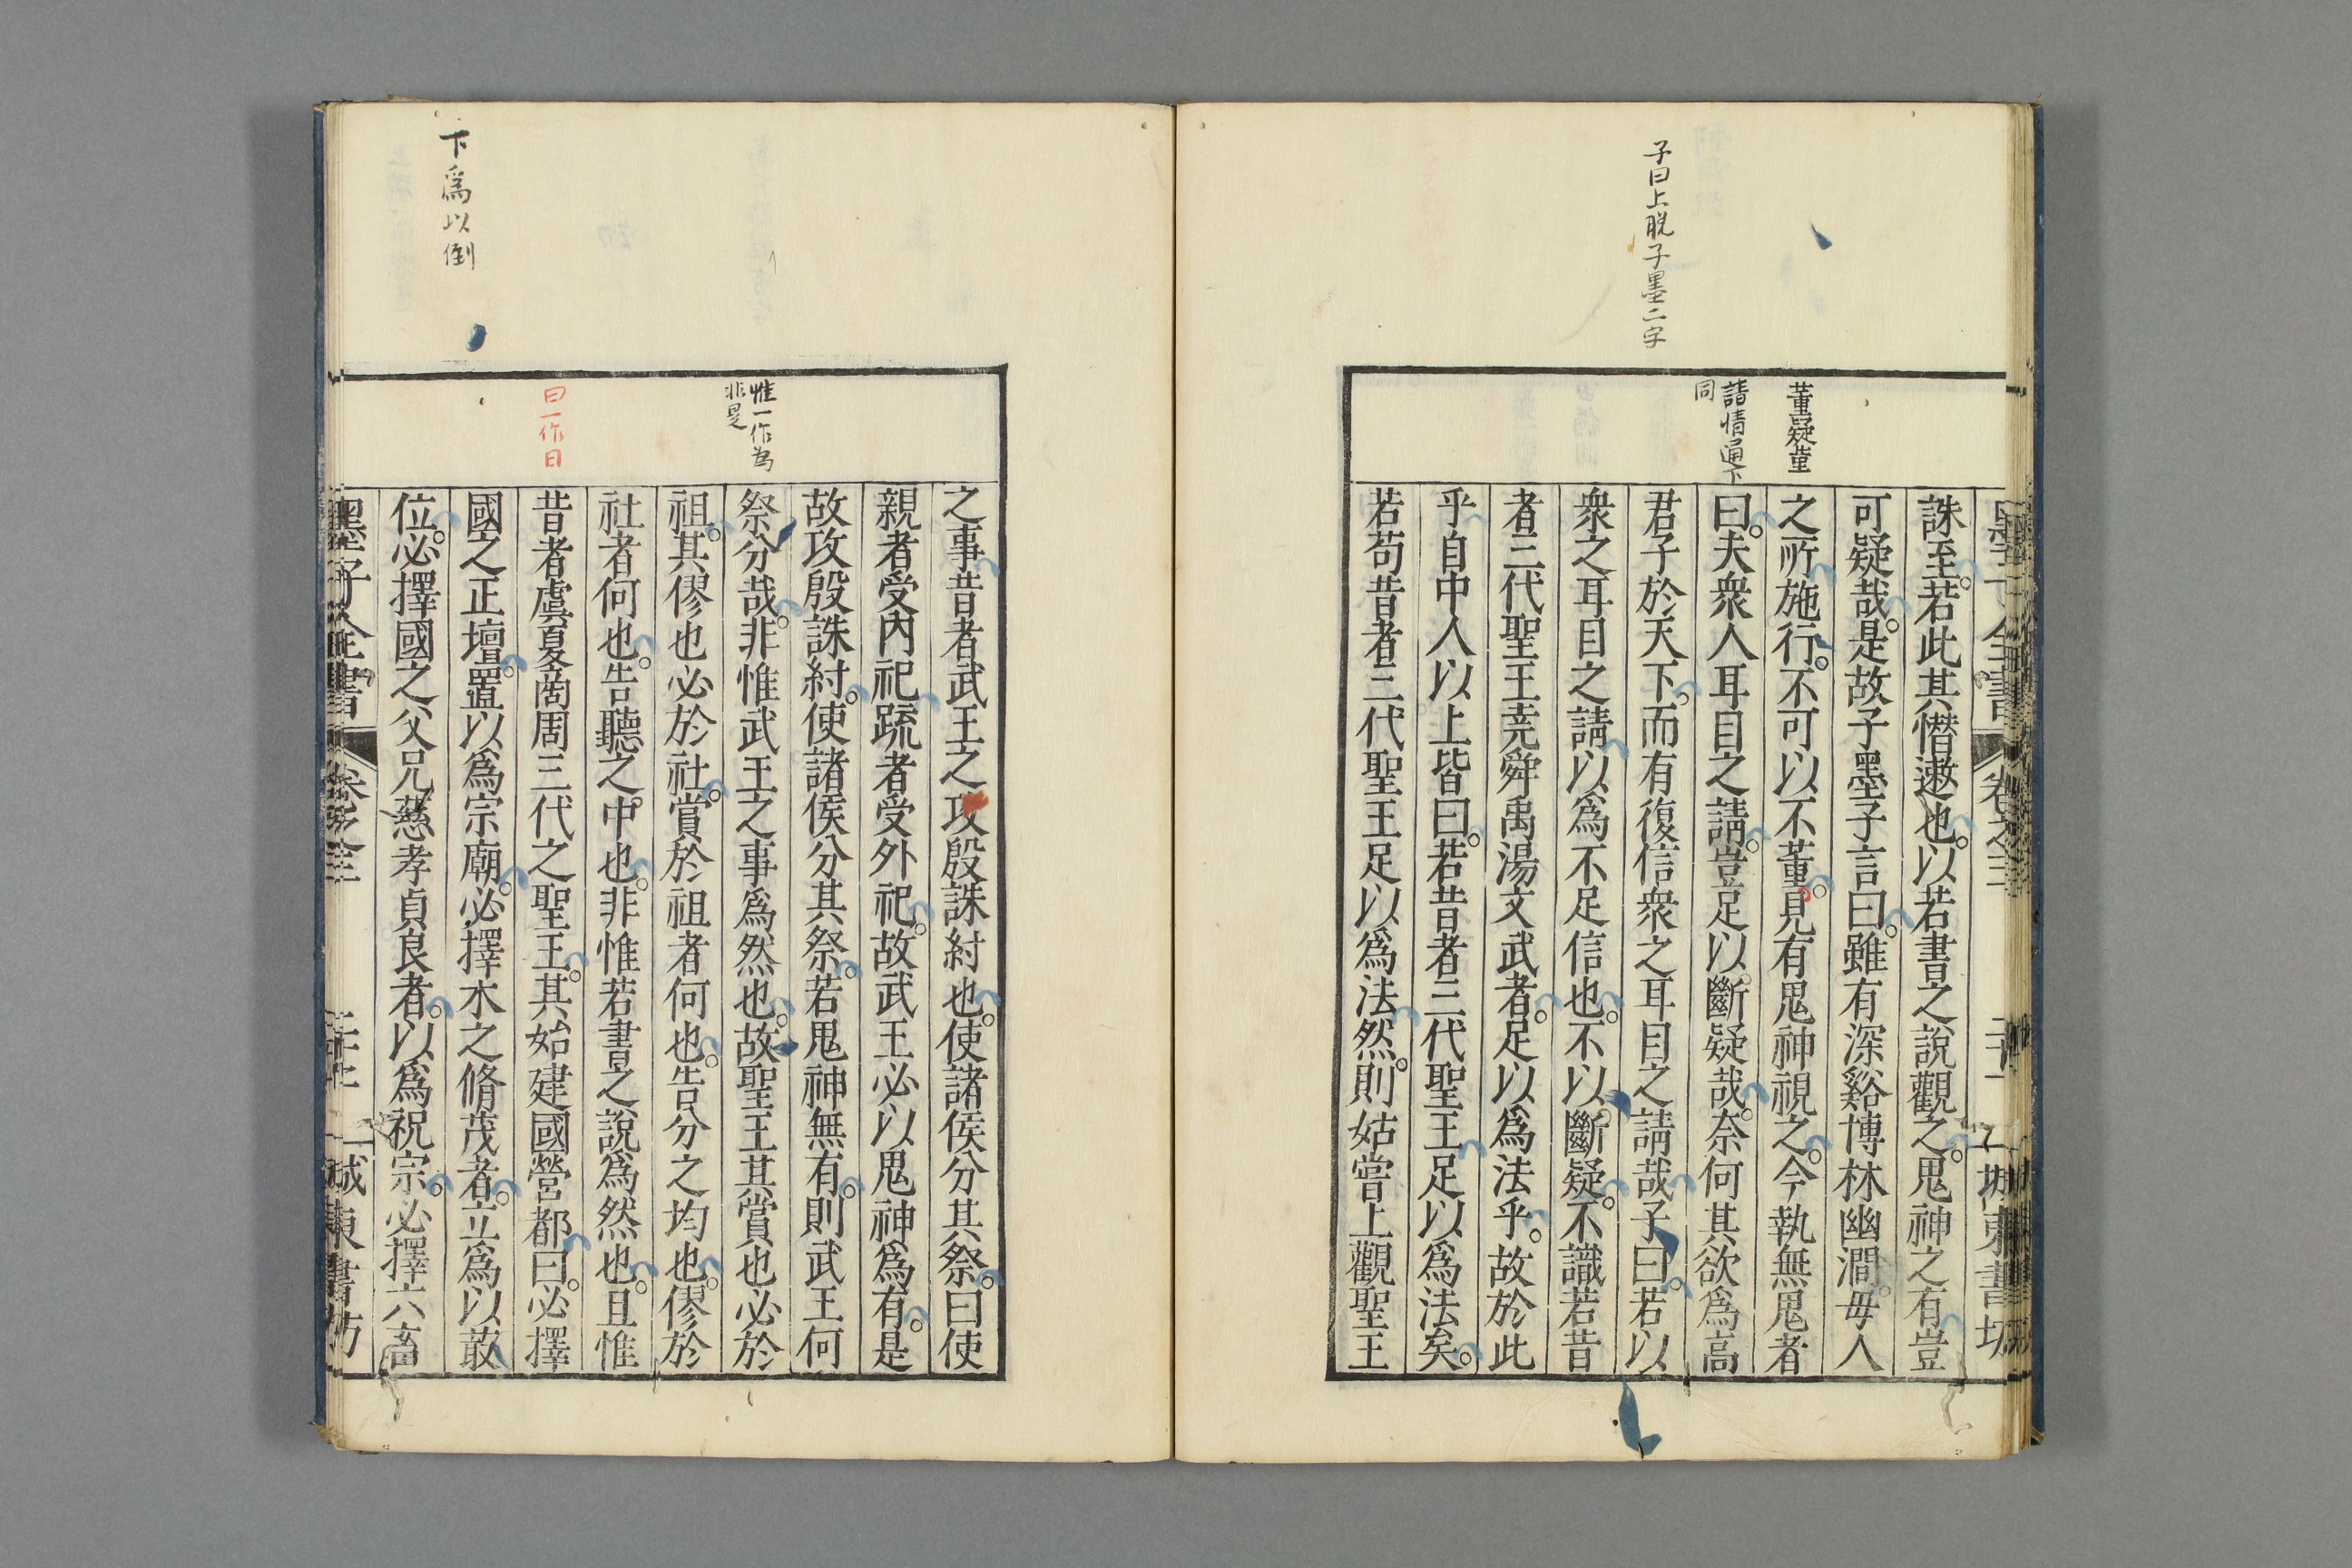 子曰上脫子墨二字
董疑堇
請情通下
同
誅至若此其憯遬也以若書之說觀之鬼神之有豈
可疑哉是故子墨子言曰雖有深谿博林幽澗毋人
之所施行不可以不董見有鬼神視之今執無鬼者
曰夫衆人耳目之請豈足以斷疑哉奈何其欲爲高
君子於天下而有復信衆之耳目之請哉子曰若以
衆之耳目之請以爲不足信也不以斷疑不識若昔
者三代聖王堯舜禹湯文武者足以爲法乎故於此
乎自中人以上皆曰若昔者三代聖王足以爲法矣
若苟昔者三代聖王足以爲法然則姑嘗上觀聖王
卞爲以倒
惟一作爲
非是
曰一作日
之事昔者武王之攻殷誅紂也使諸侯分其祭曰使
親者受內祀疏者受外祀故武王必以鬼神爲有是
故攻殷誅紂使諸侯分其祭若鬼神無有則武王何
祭分哉非惟武王之事爲然也故聖王其賞也必於
祖其僇也必於社賞於祖者何也告分之均也僇於
社者何也告聽之中也非惟若書之說爲然也且惟
昔者虞夏商周三代之聖王其始建國營都曰必擇
國之正壇置以爲宗廟必擇木之脩茂者立爲以菆
位必擇國之父兄慈孝貞良者以爲祝宗必擇六畜
墨子全書 卷之三 城東書坊